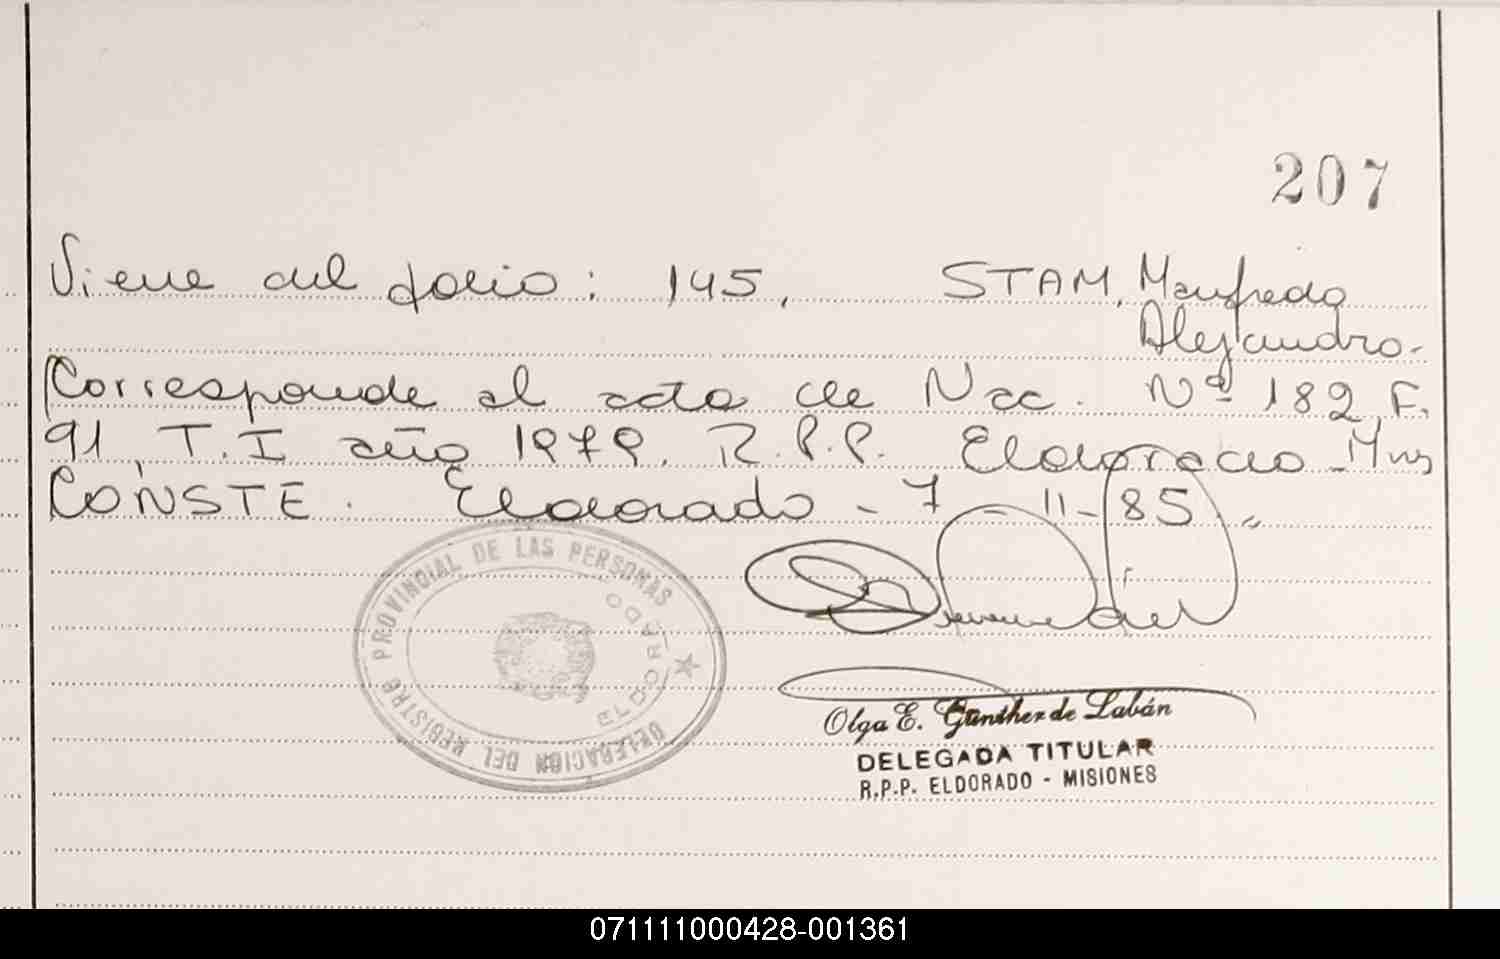 207
Viene del folio: 145, STAM, Manfredo
Alejandro.-
Corresponde al acta de Nac. Nº 182, F.
91, T. I año 1979. R.P.P. Eldorado - Mnes
CONSTE. Eldorado - 7 - 11 - 85.
DELEGACION DEL REGISTRO PROVINCIAL DE LAS PERSONAS
ELDORADO
Olga E. Günther de Labán
DELEGADA TITULAR
R.P.P. ELDORADO - MISIONES
071111000428-001361